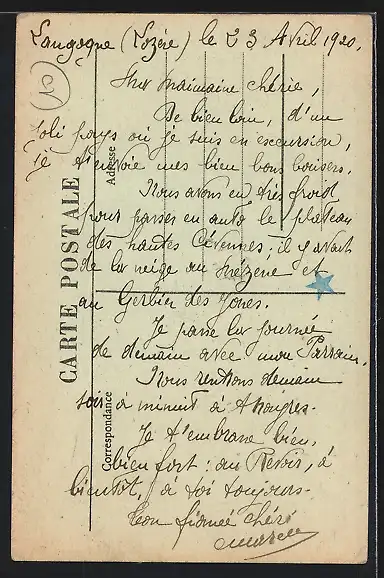 Langogne (Lozère) le 23 Avril 1920.
Ma maimaine chérie,
De bien loin, d'un
joli pays où je suis en excursion,
je t'envoie mes bien bons baisers.
Nous avons eu très froid
pour passer en auto le plateau
des hautes Cévennes. il y avait
de la neige au Mézenc et
au Gerbier des Joncs.
Je passe la journée
de demain avec mon Parrain.
Nous rentrons demain
soir à minuit à
Je t'embrasse bien,
bien fort : au Revoir, à
bientôt, à toi toujours.
Ton fiancé chéri
Marcel
CARTE POSTALE
Adresse
Correspondance